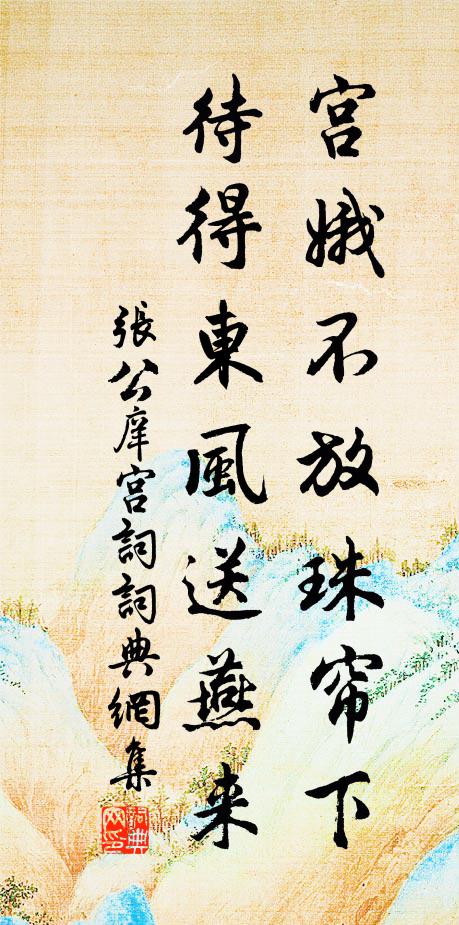 宫娥不放珠帘下
待得東風送燕来
張公庠宫詞詞典網集
詞典網印